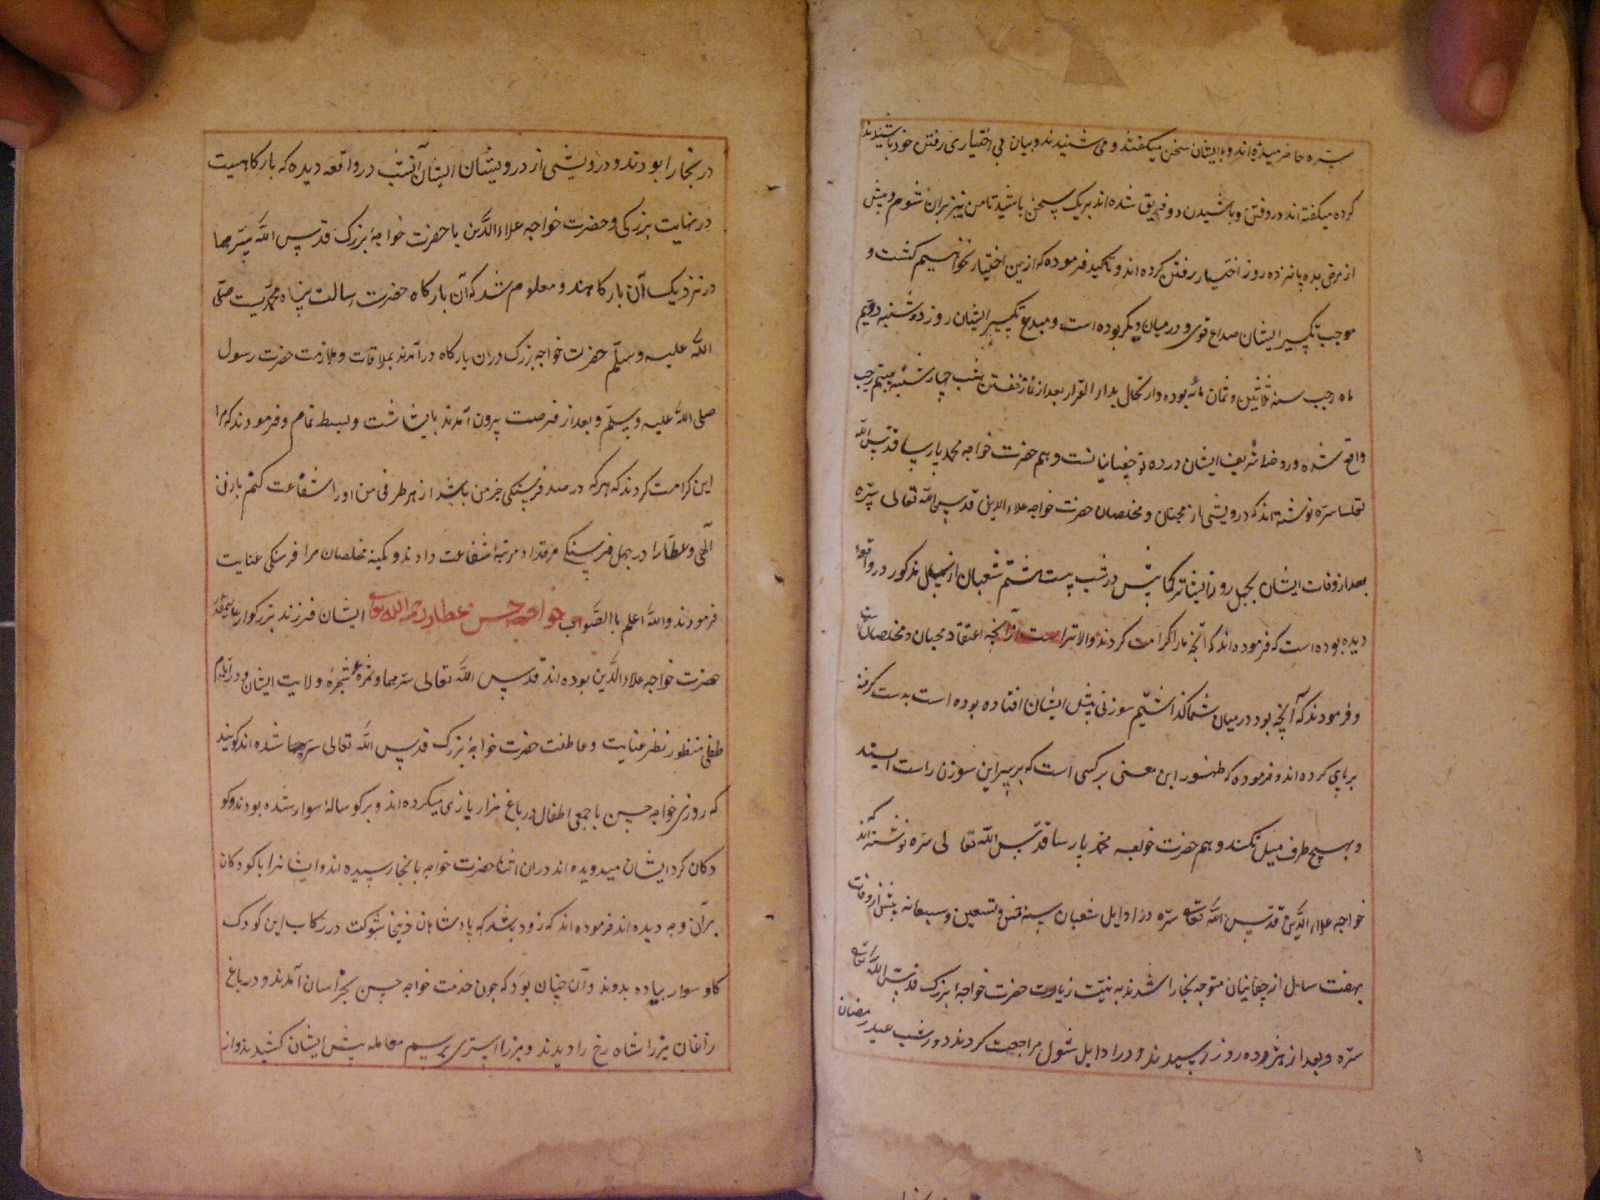 سره حاضر میشده‌اند و با ایشان سخن میگفتند و می شنیدند و میان بی اختیاری رفتن خود باشیدند
کرده میگفته اند در رفتن و باشیدن دو فریق شده اند بر یک سخن باشید تا من نیز بران شوم و پیش
از مرض بده پانزده روز اختیار رفتن کرده اند و تاکید فرموده که ازین اختیار نخواهیم گشت و
موجب تکسیر ایشان صداع قوی و در میان دیگر بوده است و مبدع تکسیر ایشان روز دوشنبه دویم
ماه رجب سنه ثلثین و ثمان مائه بوده و ارتحال بدار القرار بعد از نماز خفتن شب چهارشنبه بیستم رجب
واقع شده و روضه شریفه ایشان در ده نو چغانیانست و هم حضرت خواجه محمد پارسا قدس الله
تعالی سره نوشته اند که درویشی از محبان و مخلصان حضرت خواجه علاء الدین قدس الله تعالی سره
بعد از وفات ایشان بچهل روز در شب بیست هشتم شعبان از سال مذکور در واقعه
دیده بوده است که فرموده اند که آنچه ما را کرامت کردند والاتر است از آنچه اعتقاد محبان و مخلصان
و فرمودند که آنچه بود در میان شما گذاشتیم سوزنی پیش ایشان افتاده بوده است بدست گرفته
بر پای کرده اند و فرموده که ظهور این معنی بر کسی است که بر سر این سوزن راست ایستد
و بهیچ طرف میل نکند و هم حضرت خواجه محمد پارسا قدس الله تعالی سره نوشته اند که
خواجه علاء الدین قدس الله تعالی سره در اوایل شعبان سنه خمس و تسعین و سبعمائه پیش از وفات
بهفت سال از چغانیان متوجه بخارا شدند به نیت زیارت حضرت خواجه بزرگ قدس الله تعالی
سره و بعد از هژده روز رسیدند و در اوایل شوال مراجعت کردند و در شب عید رمضان
در بخارا بودند و درویشی از درویشان ایشان آنشب در واقعه دیده که بارگاهیست
در نهایت بزرگی و حضرت خواجه علاء الدین با حضرت خواجه بزرگ قدس الله سرهما
در نزدیک آن بارگاهند و معلوم شد که آن بارگاه حضرت رسالت پناه محمدیست صلی
الله علیه و سلم حضرت خواجه بزرگ دران بارگاه درآمدند بملاقات و ملازمت حضرت رسول
صلی الله علیه و سلم و بعد از فرصت بیرون آمدند با بشاشت و بسط تمام و فرمودند که مرا
این کرامت کردند که هرکه در صد فرسنگی من باشد از هر طرفی من او را شفاعت کنم باذن
الهی و عطار را در چهل فرسنگی مرقد او مرتبه شفاعت دادند و بکمینه مخلصان مرا فرسنگی عنایت
فرمودند والله اعلم بالصواب خواجه حسن عطار رحمه الله تعالی ایشان فرزند بزرگوار
حضرت خواجه علاء الدین بوده اند قدس الله تعالی سرهما و ثمره شجره ولایت ایشان و در ایام
طفلی منظور نظر عنایت و عاطفت حضرت خواجه بزرگ قدس الله تعالی سرهما شده اند گویند
که روزی خواجه حسن با جمعی اطفال در باغ مزار بازی میکرده اند و بر گوساله سوار شده بودند و کو
دکان گرد ایشان میدویده اند دران اثنا حضرت خواجه بانجا رسیده اند و ایشانرا با کودکان
بر آن وجه دیده اند فرموده اند که زود باشد که پادشاهان ذیشوکت در رکاب این کودک
گاو سوار پیاده بدوند و آن چنان بود که چون خدمت خواجه حسن بخراسان آمدند و در باغ
زاغان میرزا شاه رخ را دیدند و میرزا استری برسم معامله پیش ایشان کشیدند و از